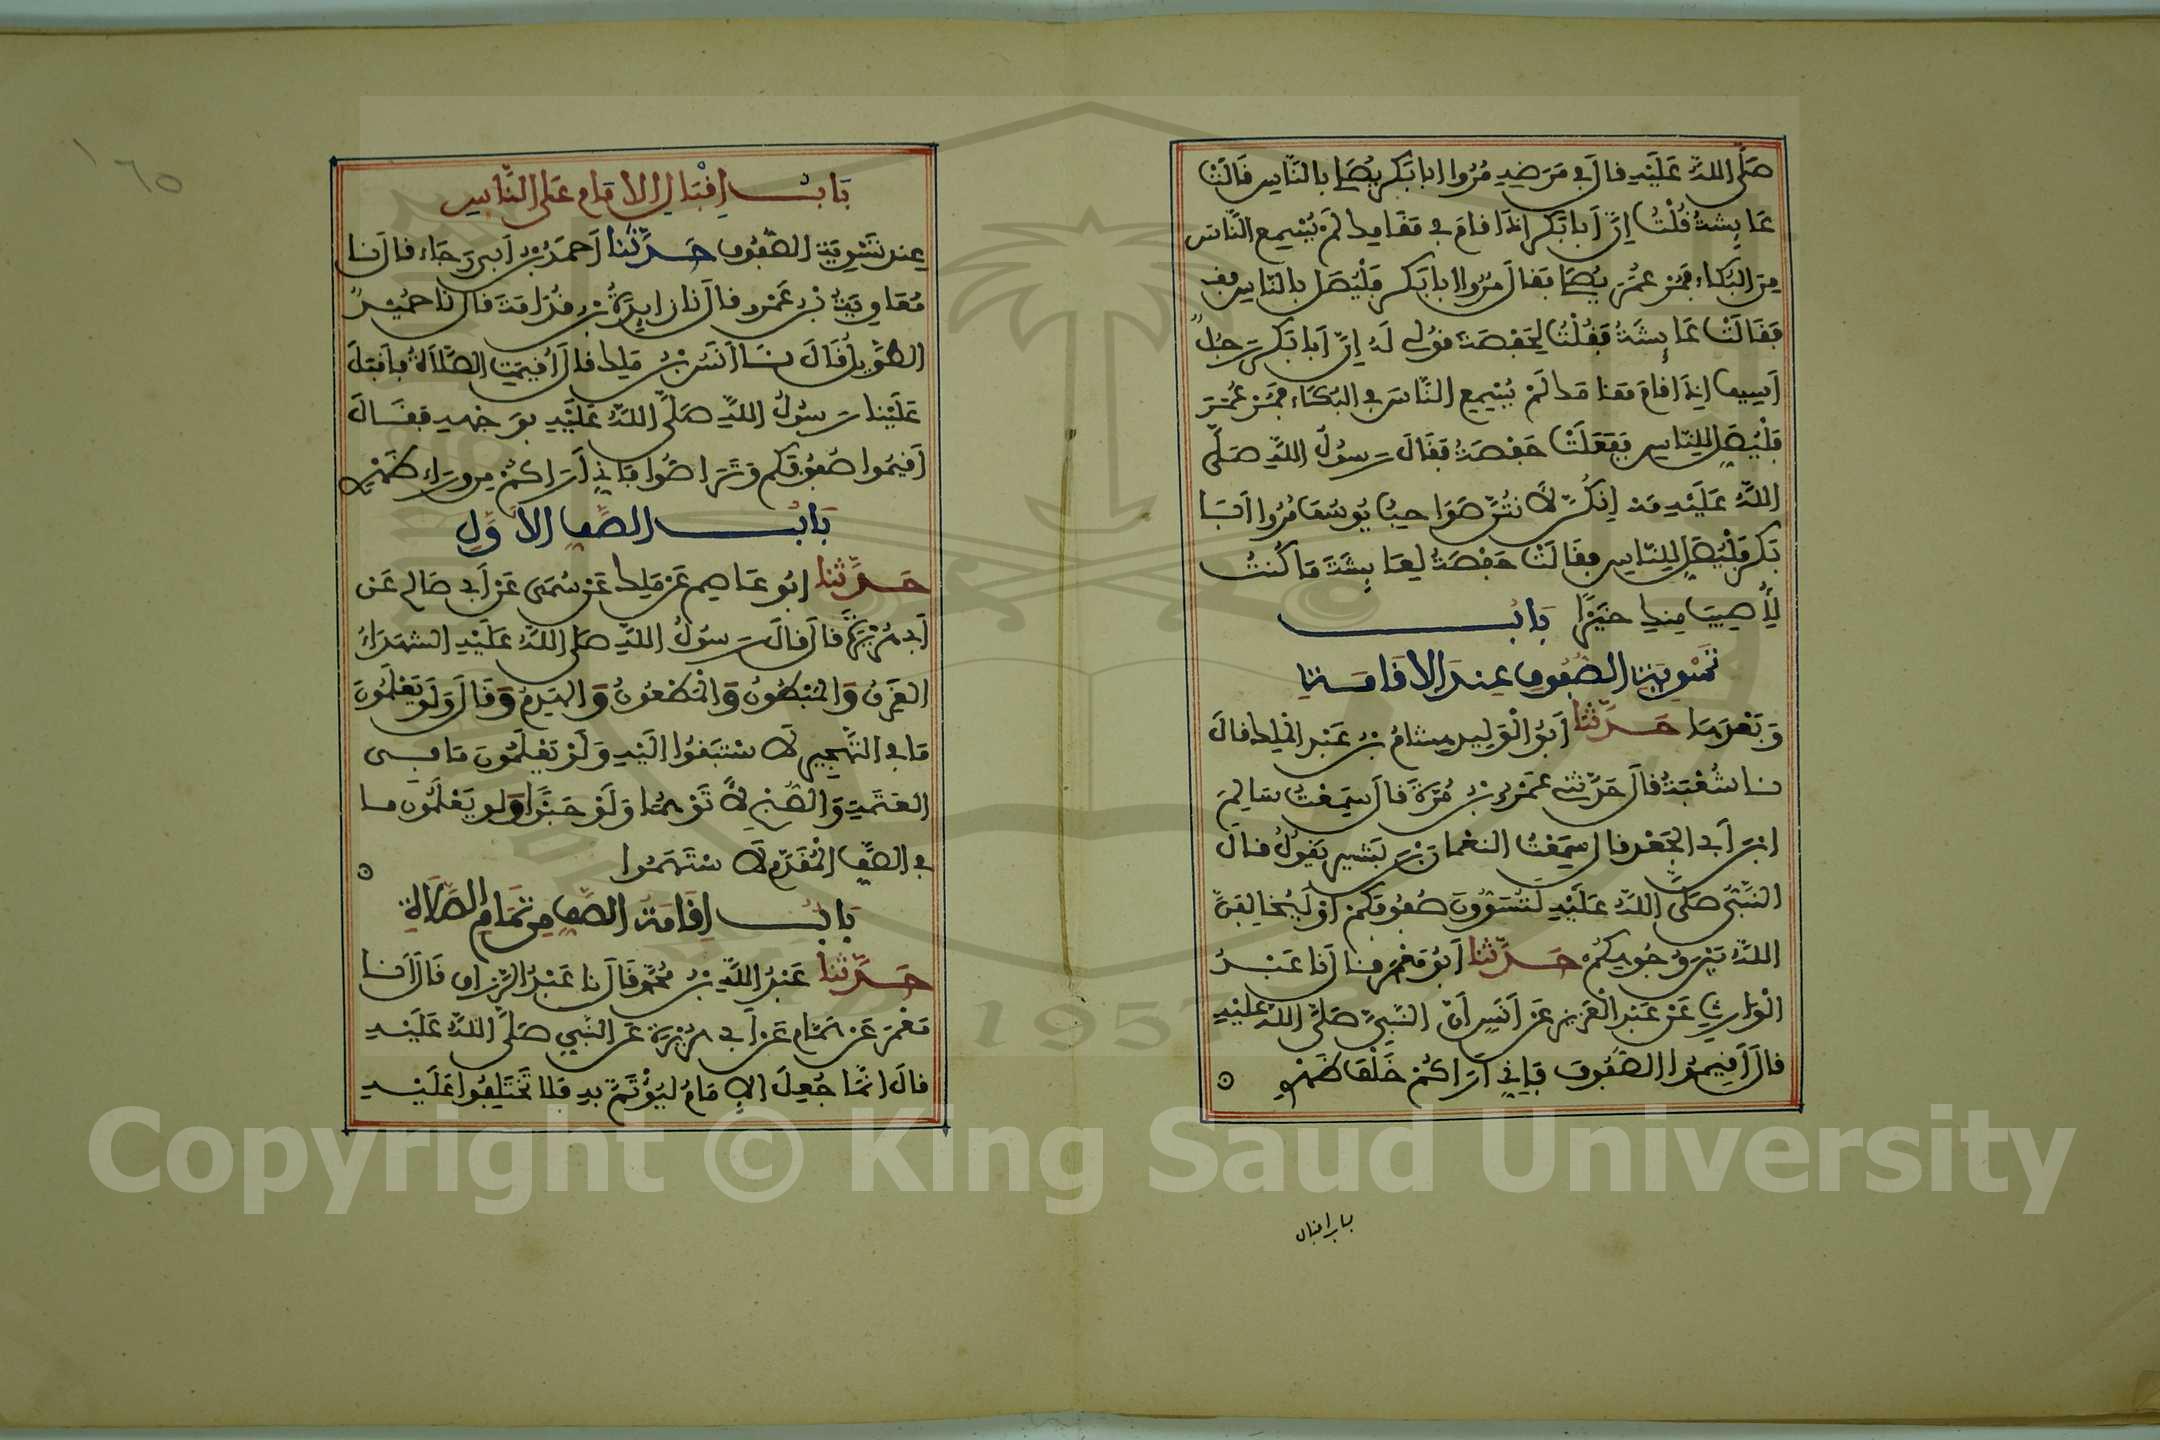 صَلَّى اللهُ عَلَيْهِ قال في مَرَضِهِ مُرُوا ابا بَكرٍ يُصَلِّ بالنَّاسِ قَالَتْ
عَايِشةُ قُلْتُ اِنَّ أبا بَكرٍ اذا قامَ في مَقَامِكَ لَمْ يُسْمِعِ النَّاسَ
مِنَ البُكاءِ فَمُرْ عُمَرَ يُصَلِّ فقال مُرُوا ابا بَكرٍ فَلْيُصَلِّ بالنّاسِ
فَقَالَتْ عَايِشَةُ فَقُلْتُ لِحَفْصَةَ قولِي لَهُ اِنَّ أبا بَكرٍ رَجلٌ
أسِيفٌ اِذَا قامَ مَقَامَكَ لَمْ يُسْمِعِ النَّاسَ في البُكَاءِ فَمُرْ عُمَرَ
فَلْيُصَلِّ لِلنَّاسِ فَفَعَلَتْ حَفْصَةُ فَقَالَ رَسُولُ اللهِ صَلَّى
اللهُ عَلَيْهِ مَهْ اِنَّكُنَّ لَأنتُنَّ صَوَاحِبُ يُوسُفَ مُرُوا أبَا
بَكرٍ فَلْيُصَلِّ لِلنّاسِ فقَالَتْ حَفْصَةُ لِعَايِشَةَ مَا كُنتُ
لِأُصِيبَ مِنكِ خَيْرًا بَابُ
تَسْوِيَةِ الصُّفُوفِ عِندَ الاقَامَةِ
وَبَعْدَهَا حَدَّثَنَا أبُو الْوَلِيدِ هِشامُ بْنُ عَبْدِ الملِكِ قالَ
نا شُعْبَةُ قالَ حَدَّثَنِي عَمْرُو بْنُ مُرَّةَ قالَ سَمِعْتُ سَالِمَ
ابْنَ أبي الجَعْدِ قال سَمِعْتُ النعْمانَ بْنَ بَشِيرٍ يَقُولُ قالَ
النَّبِيُّ صَلَّى اللهُ عَلَيْهِ لَتُسَوُّونَ صُفُوفَكُمْ أوْ لَيُخَالِفَنَّ
اللهُ بَيْنَ وُجُوهِكُمْ حَدَّثَنا أبُو مَعْمَرٍ قال أنَا عَبْدُ
الْوَارِثِ عَنْ عَبْدِ الْعَزِيزِ عَنْ أنَسٍ أنَّ النَّبِيَّ صَلَّى اللهُ عَلَيْهِ
قالَ أقِيمُوا الصُّفُوفَ فَإِنِّي أرَاكُمْ خَلْفَ ظَهْرِي
باب اقبال
١٦٥
بَابُ اِقْبَالِ الامَامِ عَلَى النَّاسِ
عِندَ تَسْوِيَةِ الصُّفُوفِ حَدَّثَنا أحمَدُ بْنُ أبي رَجَاءٍ قالَ نَا
مُعَاوِيَةُ بْنُ عَمْرٍو قالَ نا زايِدَةُ بْنُ قُدَامَةَ قالَ نَا حُمَيْدٌ
الطَّوِيلُ قَالَ نَا أنَسُ بْنُ مَلِكٍ قالَ أُقِيمَتِ الصَّلَاةُ فَأقْبَلَ
عَلَيْنا رَسُولُ اللهِ صَلَّى اللهُ عَلَيْهِ بوَجْهِهِ فَقَالَ
أقِيمُوا صُفُوفَكُمْ وَتَرَاصُّوا فَإِنِّي أرَاكُمْ مِن ورَاءِ ظَهْرِي
بَابُ الصَّفِّ الأوَّلِ
حَدَّثنا ابُو عَاصِمٍ عَنْ مَلِكٍ عَنْ سُمَيٍّ عَنْ أبي صَالِحٍ عَن
أبي هُرَيْرَةَ قالَ قالَ رَسُولُ اللهِ صَلَّى اللهُ عَلَيْهِ الشهَدَاءُ
الغَرِقُ وَالمَبْطُونُ وَالمَطْعُونُ وَالهَدِمُ وَقَالَ وَلَوْ يَعْلَمُونَ
مَا في التَّهْجِيرِ لَاسْتَبَقُوا الَيْهِ وَلَوْ يَعْلَمُونَ مَا في
العَتَمَةِ وَالصُّبْحِ لَأتَوْهُمَا وَلَوْ حَبْوًا وَلو يَعْلَمُونَ ما
في الصَّفِّ الْمُقَدَّمِ لَاسْتَهَمُوا
بَابُ اِقَامَةُ الصَّفِّ مِن تَمَامِ الصَّلَاةِ
حَدَّثنا عَبْدُ اللهِ بْنُ مُحَمَّدٍ قَالَ نا عَبْدُ الرَّزاقِ قَالَ أنَا
مَعْمَرٌ عَنْ هَمَّامٍ عَنْ أبي هُرَيْرَةَ عَنِ النَّبِيِّ صَلَّى اللهُ عَلَيْهِ
قالَ انَّمَا جُعِلَ الاِمَامُ لِيُؤْتَمَّ بِهِ فَلا تَخْتَلِفُوا عَلَيْهِ
1957
Copyright © King Saud University